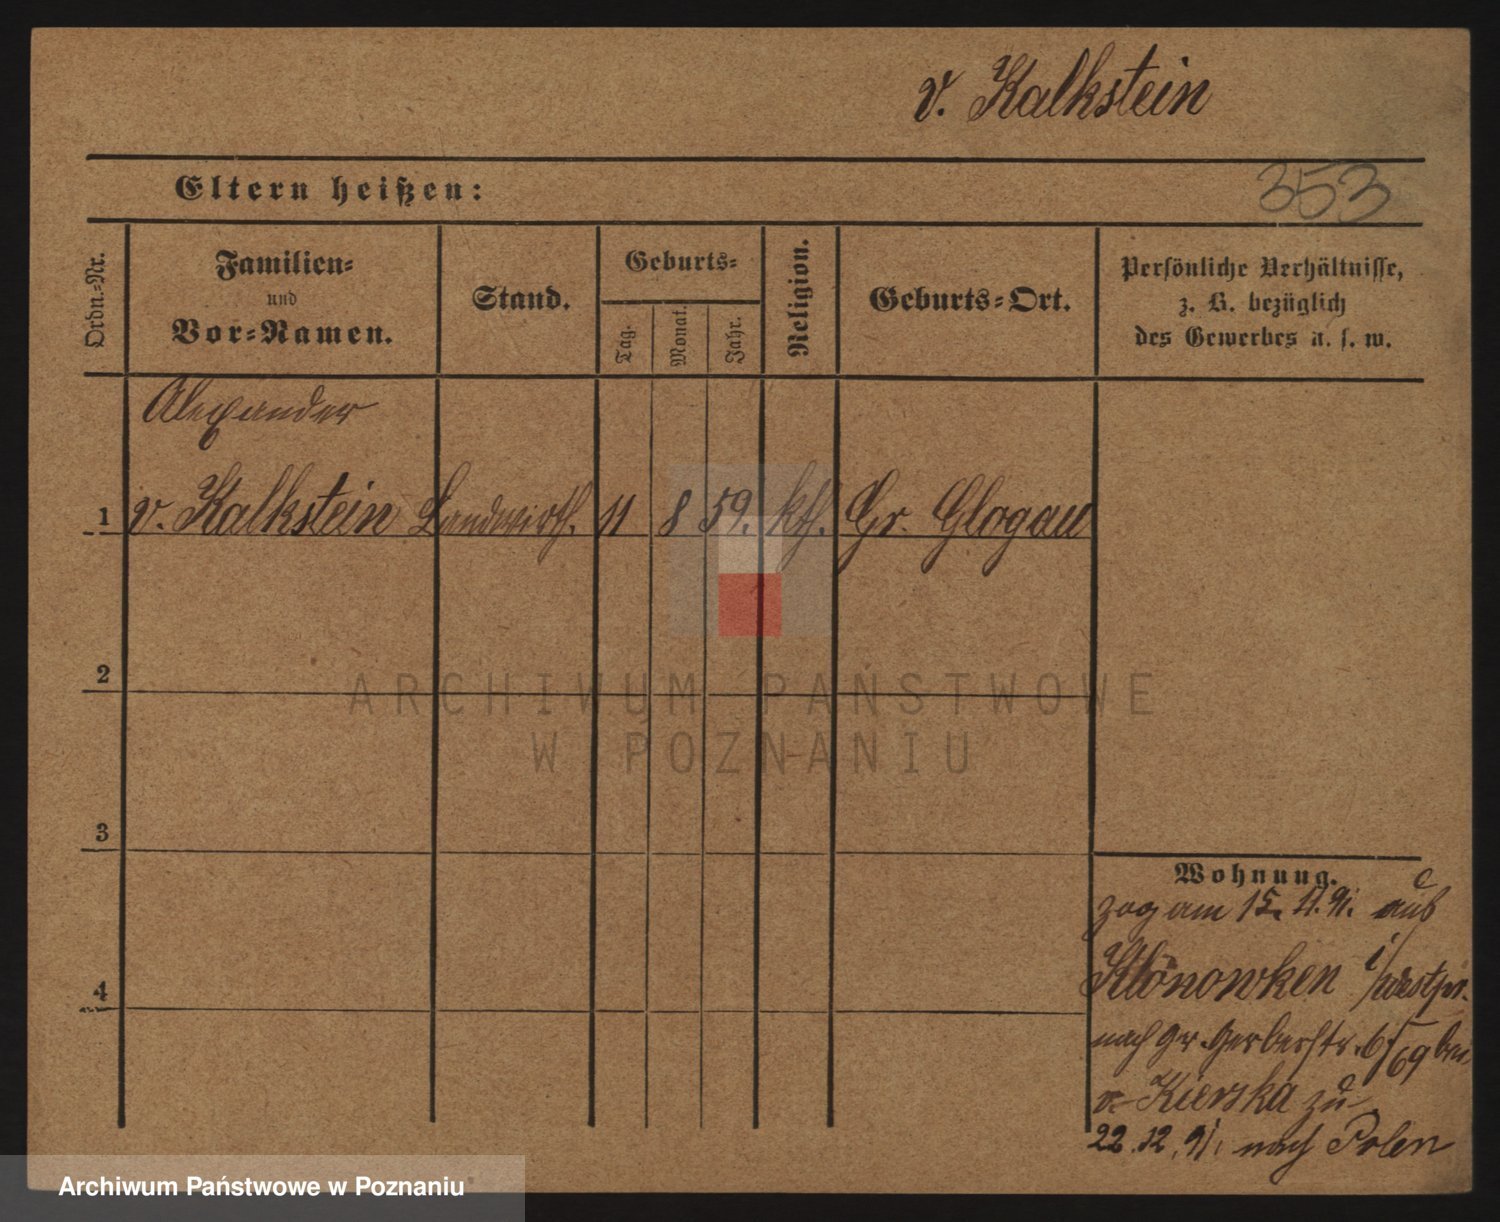 v. Kalkstein
Eltern heißen:
353
Ordn.-Nr.
Familien-
und
Vor-Namen.
Stand.
Geburts-
Tag.
Monat.
Jahr.
Religion.
Geburts-Ort.
Persönliche Verhältnisse,
z. B. bezüglich
des Gewerbes u. s. w.
Alexander
1 v. Kalkstein Landwirth. 11 8 59. kth. Gr. Glogau
2
3
4
Wohnung.
zog am 15. 11. 91. aus
Klonowken i/Westpr.
nach Gr. Gerberstr. 6/69 bei
v. Kierska zu
22.12.91. nach Polen
ARCHIWUM PAŃSTWOWE
W POZNANIU
Archiwum Państwowe w Poznaniu